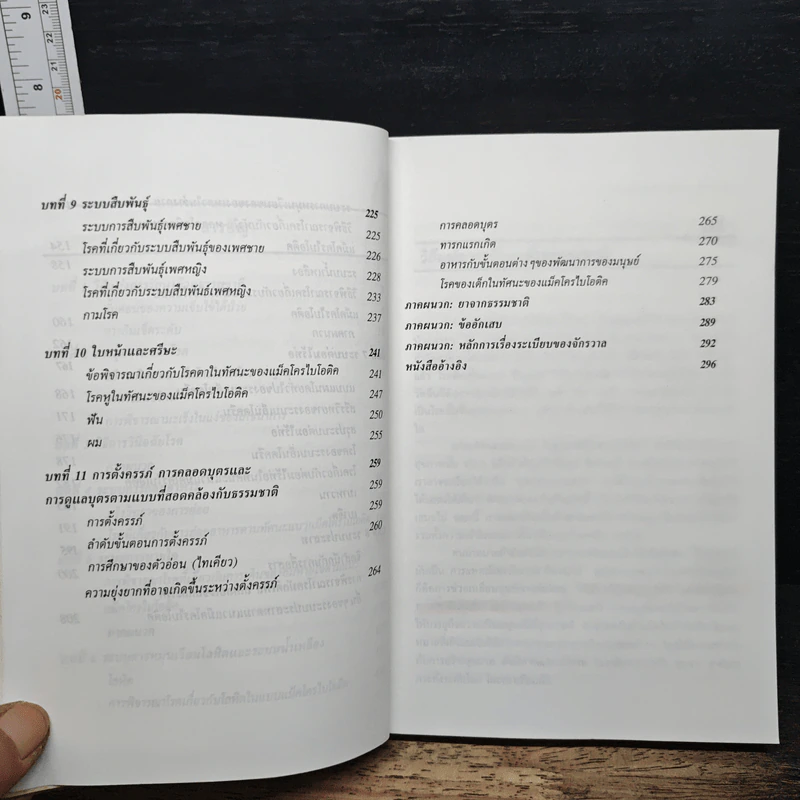 บทที่ 9 ระบบสืบพันธุ์ 225
ระบบการสืบพันธุ์เพศชาย 225
โรคที่เกี่ยวกับระบบสืบพันธุ์ของเพศชาย 226
ระบบการสืบพันธุ์เพศหญิง 228
โรคที่เกี่ยวกับระบบสืบพันธ์เพศหญิง 233
กามโรค 237
บทที่ 10 ใบหน้าและศรีษะ 241
ข้อพิจารณาเกี่ยวกับโรคตาในทัศนะของแม็คโครไบโอติค 241
โรคหูในทัศนะของแม็คโครไบโอติค 247
ฟัน 250
ผม 255
บทที่ 11 การตั้งครรภ์ การคลอดบุตรและ 259
การดูแลบุตรตามแบบที่สอดคล้องกับธรรมชาติ 259
การตั้งครรภ์ 259
ลำดับขั้นตอนการตั้งครรภ์ 260
การศึกษาของตัวอ่อน (ไทเคียว)
ความยุ่งยากที่อาจเกิดขึ้นระหว่างตั้งครรภ์ 264
การคลอดบุตร 265
ทารกแรกเกิด 270
อาหารกับขั้นตอนต่างๆของพัฒนาการของมนุษย์ 275
โรคของเด็กในทัศนะของแม็คโครไบโอติค 279
ภาคผนวก: ยาจากธรรมชาติ 283
ภาคผนวก: ข้ออักเสบ 289
ภาคผนวก: หลักการเรื่องระเบียบของจักรวาล 292
หนังสืออ้างอิง 296